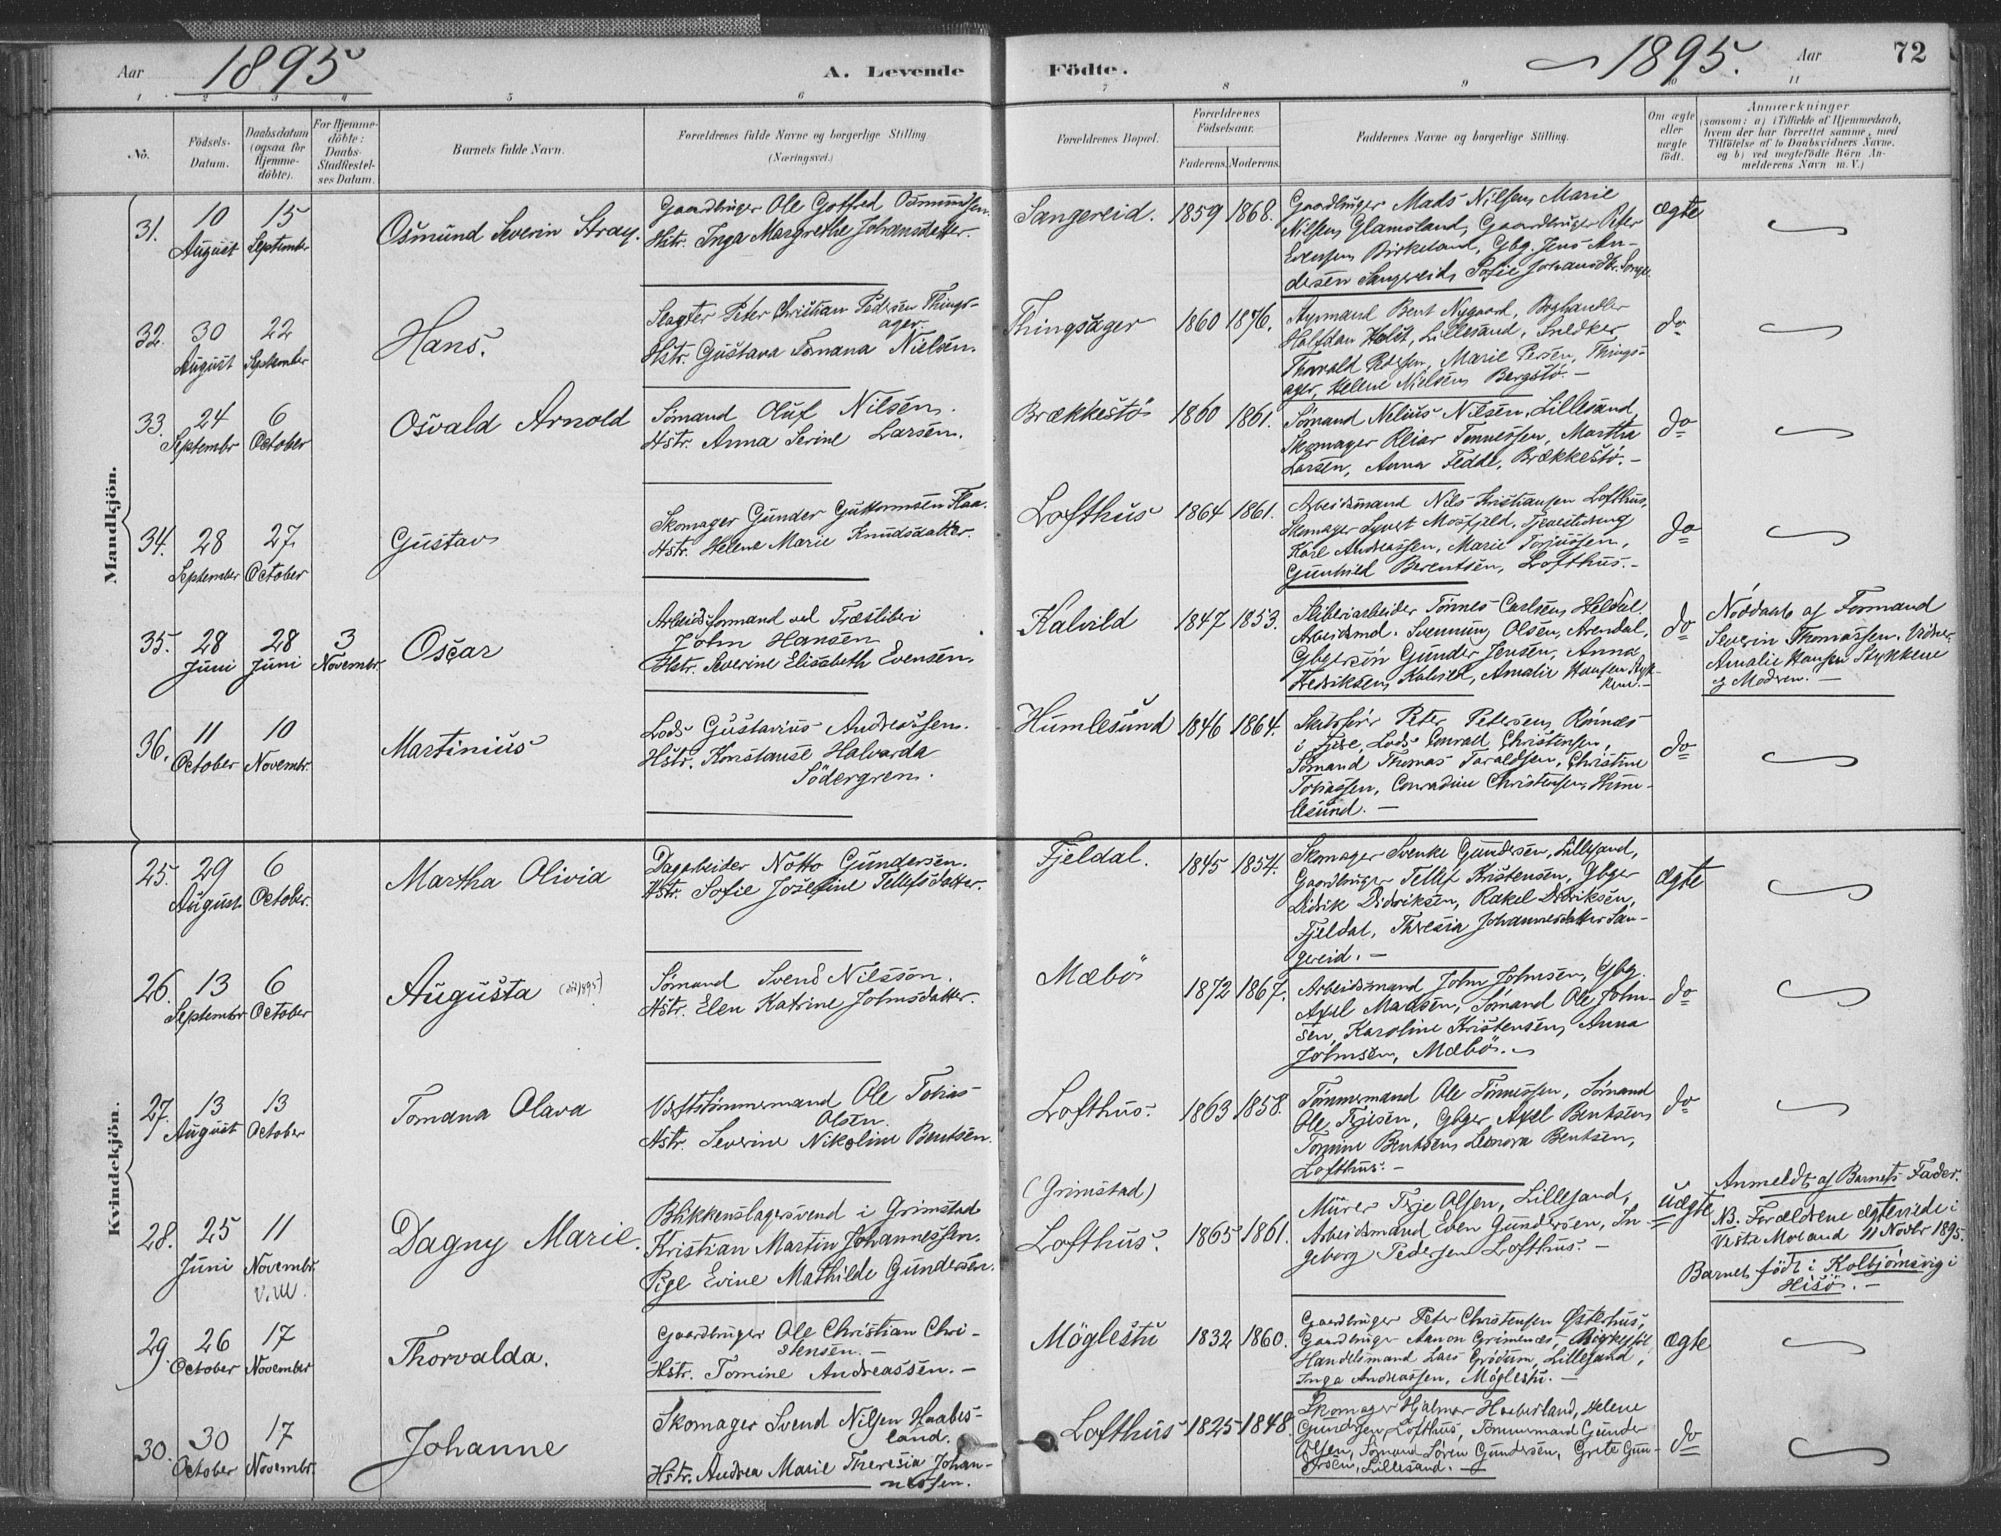 Aar 1895 A. Levende Födte. 1895. Aar 72
1 2 3 4 5 6 7 8 9 10 11
No.
Födsels-
Datum.
Daabsdatum
(ogsaa for
Hjemme-
döbte).
For Hjemme-
döbte:
Daabs-
Stadfæstel-
ses Datum.
Barnets fulde Navn.
Forældrenes fulde Navne og borgerlige Stilling
(Næringsvei.)
Forældrenes Bopæl.
Forældrenes
Födselsaar.
Faderens. Moderens.
Faddernes Navne og borgerlige Stilling.
Om ægte
eller
uægte
födt.
Anmærkninger
(saasom: a) i Tilfælde af Hjemmedaab,
hvem der har forrettet samme, med
Tilföielse af to Daabsvidners Navne,
og b) ved uægtefödte Börn An-
melderens Navn m. V.)
Mandkjön.
31. 10 August 15 September
Osmund Severin Stray.
Gaardbruger Ole Gotfred Osmundsen.
Hstr. Inga Margrethe Johansdatter.
Sangereid. 1859 1868.
Gaardbruger Mads Nilsen, Marie
Nilsen Glamsland, Gaardbruger Peter
Evensen Birkeland, Gbg. Jens An-
dersen Sangereid, Sofie Johansdtr. Sange
ægte
32. 30 August 22 September
Hans.
Slagter Peter Christian Pedersen Things-
ager.
Hstr. Gustava Tomana Nielsen.
Thingsager 1860 1876.
Avismand Bent Nygaard, Boghandler
Halfdan Holst, Lillesand, Snedker
Thorvald Pedersen, Marie Persen, Things-
ager, Helene Nielsen, Bergstö.-
do
33. 24 Septembr 6 October
Osvald Arnold
Sömand Oluf Nilsen.
Hstr. Anna Serine Larsen.
Brækkestö 1860 1861.
Sömand Nelius Nilsen, Lillesand,
Skomager Reiar Tönnessen, Martha
Larsen, Anna Fedde, Brækkestö.-
do
34. 28 September 27 October
Gustav
Skomager Gunder Guttormsen Flaa.
Hstr. Helene Marie Knudsdatter.
Lofthus 1864 1861.
Arbeidsmand Nils Kristiansen Lofthus,
Skomager Syvert Mosfjeld,
Karl Andreassen, Marie Torjussen,
Gunhild Berentsen, Lofthus.-
do
35. 28 Juni 28 Juni 3 Novembr.
Oscar
Arbeidsformand ved Træsliberi
John Hansen
Hstr. Severine Elisabeth Evensen.
Kalvild 1847 1853.
Sliberiarbeider Tönnes Carlsen, Heldal.
Arbeidsmd. Svennung Olsen, Arendal,
Gbgersön Gunder Jensen, Anna
Fredriksen, Kalvild, Amalie Hansen Styk-
kene.-
do
Nöddaab af Formand
Severin Thomassen. Vidner
Amalie Hansen Stykkene
og Modren.-
36. 11 October 10 Novembr.
Martinius
Lods Gustavius Andreassen.
Hstr. Konstanse Halvarda
Södergren.
Humlesund 1846 1864.
Skibsförer Peter Petersen, Rönnes
i Fjære, Lods Conrad Christensen,
Sömand Thomas Taraldsen, Christine
Tobiassen, Conradine Christensen, Hum-
lesund.-
do
Kvindekjön.
25. 29 August 6 October.
Martha Olivia
Dagarbeider Notto Gundersen.
Hstr. Sofie Josefine Tellefsdatter.
Fjeldal. 1845 1854.
Skomager Svenke Gundersen, Lillesand,
Gaardbruger Tellef Kristensen, Gbger
Didrik Didriksen, Rakel Didriksen,
Fjeldal, Theresia Johannesdatter San-
gereid.-
ægte
26. 13 Septembr 6 October
Augusta
Sömand Svend Nilsson.
Hstr. Elen Katrine Johnsdatter.
Mæbö 1872 1867.
Arbeidsmand John Johnsen, Gbg.
Axel Madsen, Sömand Ole John-
sen, Karoline Kristensen, Anna
Johnsen, Mæbö.-
do
27. 13 August 13 October
Tomana Olava
Værftstömmermand Ole Tobias
Olsen.
Hstr. Severine Nikoline Bentsen.
Lofthus. 1863 1858.
Tömmermand Ole Tönnessen, Sömand
Ole Terjesen, Gbger Axel Bentsen,
Tomine Bentsen, Leonora Bentsen,
Lofthus.-
do
28. 25 Juni 11 Novembr.
Dagny Marie.
Blikkenslagersvend i Grimstad
Kristian Martin Johannessen.
Pige Evine Mathilde Gundersen.
(Grimstad)
Lofthus. 1865 1861.
Murer Terje Olsen, Lillesand,
Arbeidsmand Even Gundersen, In-
geborg Pedersen Lofthus.-
uægte
Anmeldt af Barnets Fader.
NB. Forældrene ægteviede i
Vestre Moland 11 Novbr 1895.
Barnet födt i Kolbjörnsvig i
Hisö.-
29. 26 October 17 November
Thorvalda.
Gaardbruger Ole Christian Chri-
stensen.-
Hstr. Tomine Andreassen.-
Möglestu 1832 1860.
Gaardbruger Peter Christensen Österhus,
Gaardbruger Aanon Grimenæs, Birkenes,
Handelsmand Lars Grödum, Lillesand,
Inga Andreassen, Möglestu.-
ægte
30. 30 October 17 Novembr.
Johanne
Skomager Svend Nilsen Haabes-
land.
Hstr. Andrea Marie Theresia Johan-
nessen.
Lofthus 1825 1848.
Skomager Hjalmar Haaberland, Helene
Gundersen Lofthus, Tömmermand Gunder
Olsen, Sömand Sören Gundersen, Grete Gun-
dersen, Lillesand.-
do